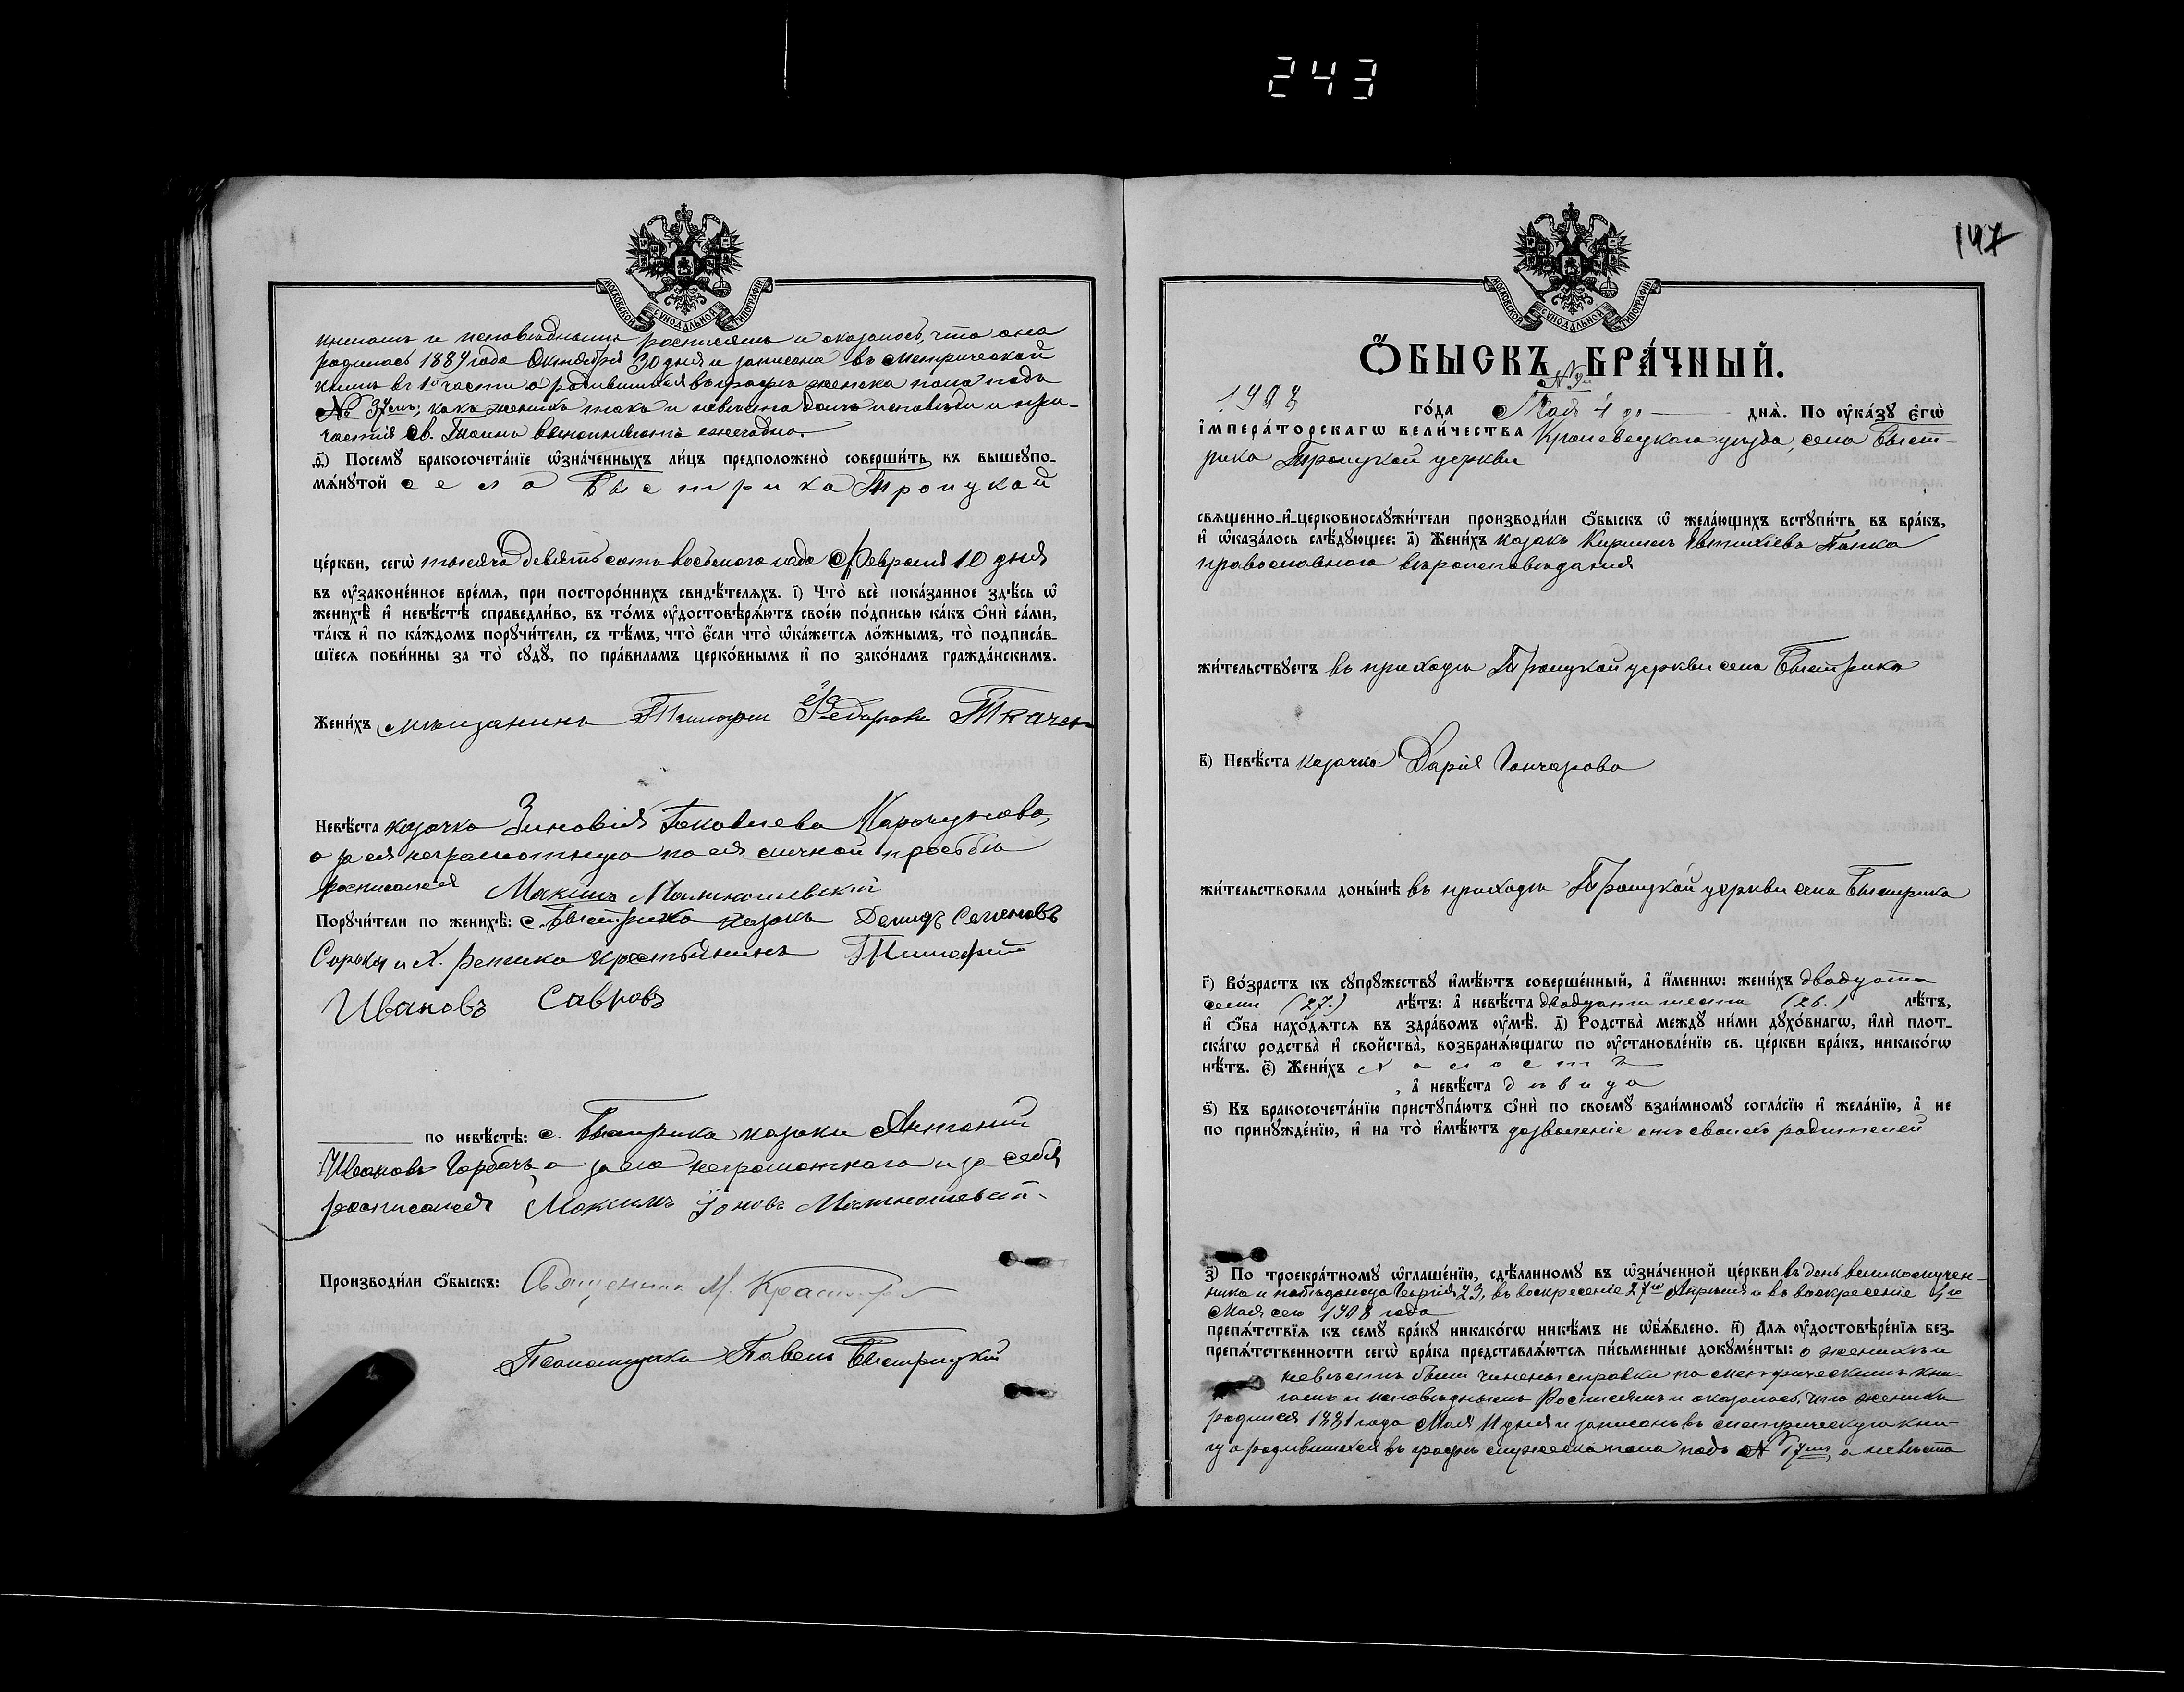 243
МОСКОВСКОЙ СУНОДАЛЬНОЙ ТИПОГРАФІИ
книгамъ и исповѣднымъ росписямъ и оказалось, что она
родилась 1889 года Октября 30 дня и записана въ метрической
книгѣ въ 1й части о родившихся въ графѣ женска пола подъ
№ 37мъ; какъ женихъ такъ и невѣста долгъ исповѣди и при-
частія Св. Таинъ выполняютъ ежегодно.
ѳ҃) Посемꙋ̀ бракосочета́нїе ѡ҆зна́ченныхъ ли́цъ предположено̀ соверши́ть въ вышеꙋпо-
мѧ́нꙋтой села Быстрика Троицкой
це́ркви, сегѡ̀ тысяча девятьсотъ восьмого года Февраля 10 дня
въ ᲂу҆зако́ненное вре́мѧ, при посторо́ннихъ свидѣ́телѧхъ. і҃) Что̀ всѐ пока́занное здѣ́сь ѡ҆
женихѣ̀ и҆ невѣ́стѣ справедли́во, въ то́мъ ᲂу҆достовѣрѧ́ютъ свое́ю по́дписью ка́къ ѻ҆нѝ са́ми,
та́къ и҆ по ка́ждомъ порꙋчи́тели, съ тѣ́мъ, что̀ є҆́сли что̀ ѡ҆ка́жетсѧ ло́жнымъ, то̀ подписа́в-
шїесѧ пови́нны за то̀ сꙋдꙋ̀, по пра́виламъ церко́внымъ и҆ по зако́намъ гражда́нскимъ.
Жени́хъ мѣщанинъ Тимофей Федоровъ Ткачен
Невѣ́ста казачка Зиновія Яковлева
а за ея неграмотную по ея личной просьбѣ
росписался Максимъ
Порꙋчи́тели по женихѣ̀: с. Быстрика казакъ Демидъ Семеновъ
и х. крестьянинъ Тимофей
Ивановъ Савровъ
по невѣ́стѣ: с. Быстрика казаки Антоній
Ивановъ Горбачъ, а за его неграмотнаго и за себя
росписался Максимъ Іоновъ
Производи́ли ѻ҆́быскъ: Священникъ М.
Псаломщикъ Павелъ Быстрицкій
147
МОСКОВСКОЙ СУНОДАЛЬНОЙ ТИПОГРАФІИ
Ѻ҆́БЫСКЪ БРА́ЧНЫЙ.
1908 го́да Мая 4 го днѧ̀. По ᲂу҆ка́зꙋ є҆гѡ̀
і҆мпера́торскагѡ вели́чества Кролевецкаго уѣзда, села Быст-
рика Троицкой церкви
свѧщенно-и҆-церковнослꙋжи́тели производи́ли ѻ҆́быскъ ѡ҆ жела́ющихъ встꙋпи́ть въ бра́къ,
и҆ ѡ҆каза́лось слѣ́дꙋющее: а҃) Жени́хъ казакъ Кириллъ Евтихіевъ Папка
православнаго вѣроисповѣданія
жи́тельствꙋетъ въ приходѣ Троицкой церкви села Быстрика
в҃) Невѣ́ста казачка Дарія Гончарова
жи́тельствовала доны́нѣ въ приходѣ Троицкой церкви села Быстрика
г҃) Во́зрастъ къ сꙋпрꙋ́жествꙋ и҆мѣ́ютъ соверше́нный, а҆ и҆́меннѡ: жени́хъ двадцати
семи (27.) лѣ́тъ: а҆ невѣ́ста двадцати шести (26.) лѣ́тъ,
и҆ ѻ҆́ба нахо́дѧтсѧ въ здра́вомъ ᲂу҆мѣ̀. д҃) Родства̀ междꙋ̀ ни́ми дꙋхо́внагѡ, и҆лѝ плот-
ска́гѡ родства̀ и҆ свойства̀, возбранѧ́ющагѡ по ᲂу҆становле́нїю св. це́ркви бра́къ, никако́гѡ
нѣ́тъ. є҃) Жени́хъ холостъ
, а҆ невѣ́ста дѣвица
ѕ҃) Къ бракосочета́нїю пристꙋпа́ютъ ѻ҆нѝ по своемꙋ̀ взаи́мномꙋ согла́сїю и҆ жела́нїю, а҆ не
по принꙋжде́нїю, и҆ на то̀ и҆мѣ́ютъ дозволеніе отъ своихъ родителей
з҃) По троекра́тномꙋ ѡ҆глаше́нїю, сдѣ́ланномꙋ въ ѡ҆зна́ченной це́ркви въ день великомучен-
ника и побѣдоносца Георгія 23, въ воскресеніе 27го Апрѣля и въ воскресеніе 4го
Мая сего 1908 года
препѧ́тствїѧ къ семꙋ̀ бра́кꙋ никако́гѡ никѣ́мъ не ѡ҆б̾ѧ́влено. и҃) Длѧ ᲂу҆достовѣре́нїѧ без-
препѧ́тственности сегѡ̀ бра́ка представлѧ́ютсѧ пи́сьменные докꙋме́нты: о женихѣ и
невѣстѣ были чинены справки по метрическимъ кни-
гамъ и исповѣднымъ росписямъ и оказалось, что женихъ
родился 1881 года Мая 11 дня и записанъ въ метрическую кни-
гу о родившихся въ графѣ мужеска пола подъ № 17мъ, а невѣста